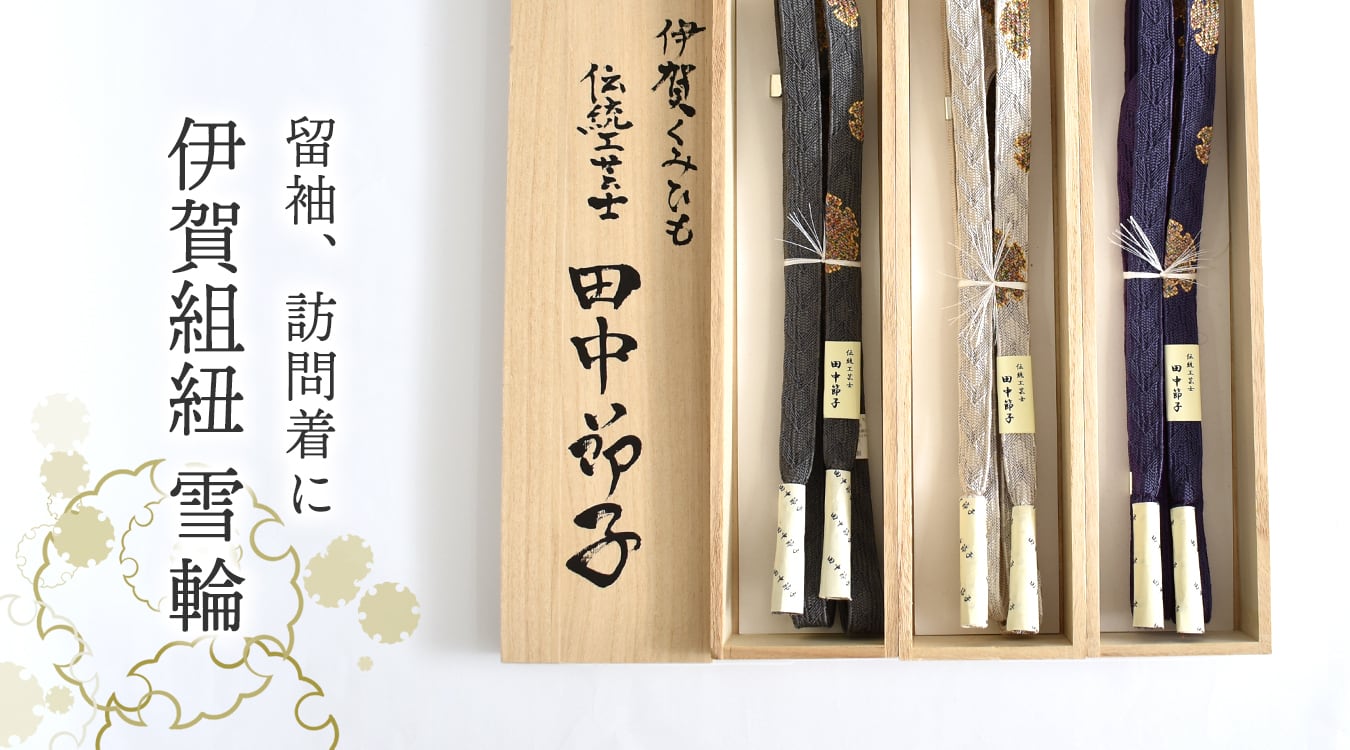 留袖、訪問着に
伊賀組紐 雪輪
伊賀くみひも
伝統工芸士
田中節子
伝統工芸士
田中節子
伝統工芸士
田中節子
伝統工芸士
田中節子